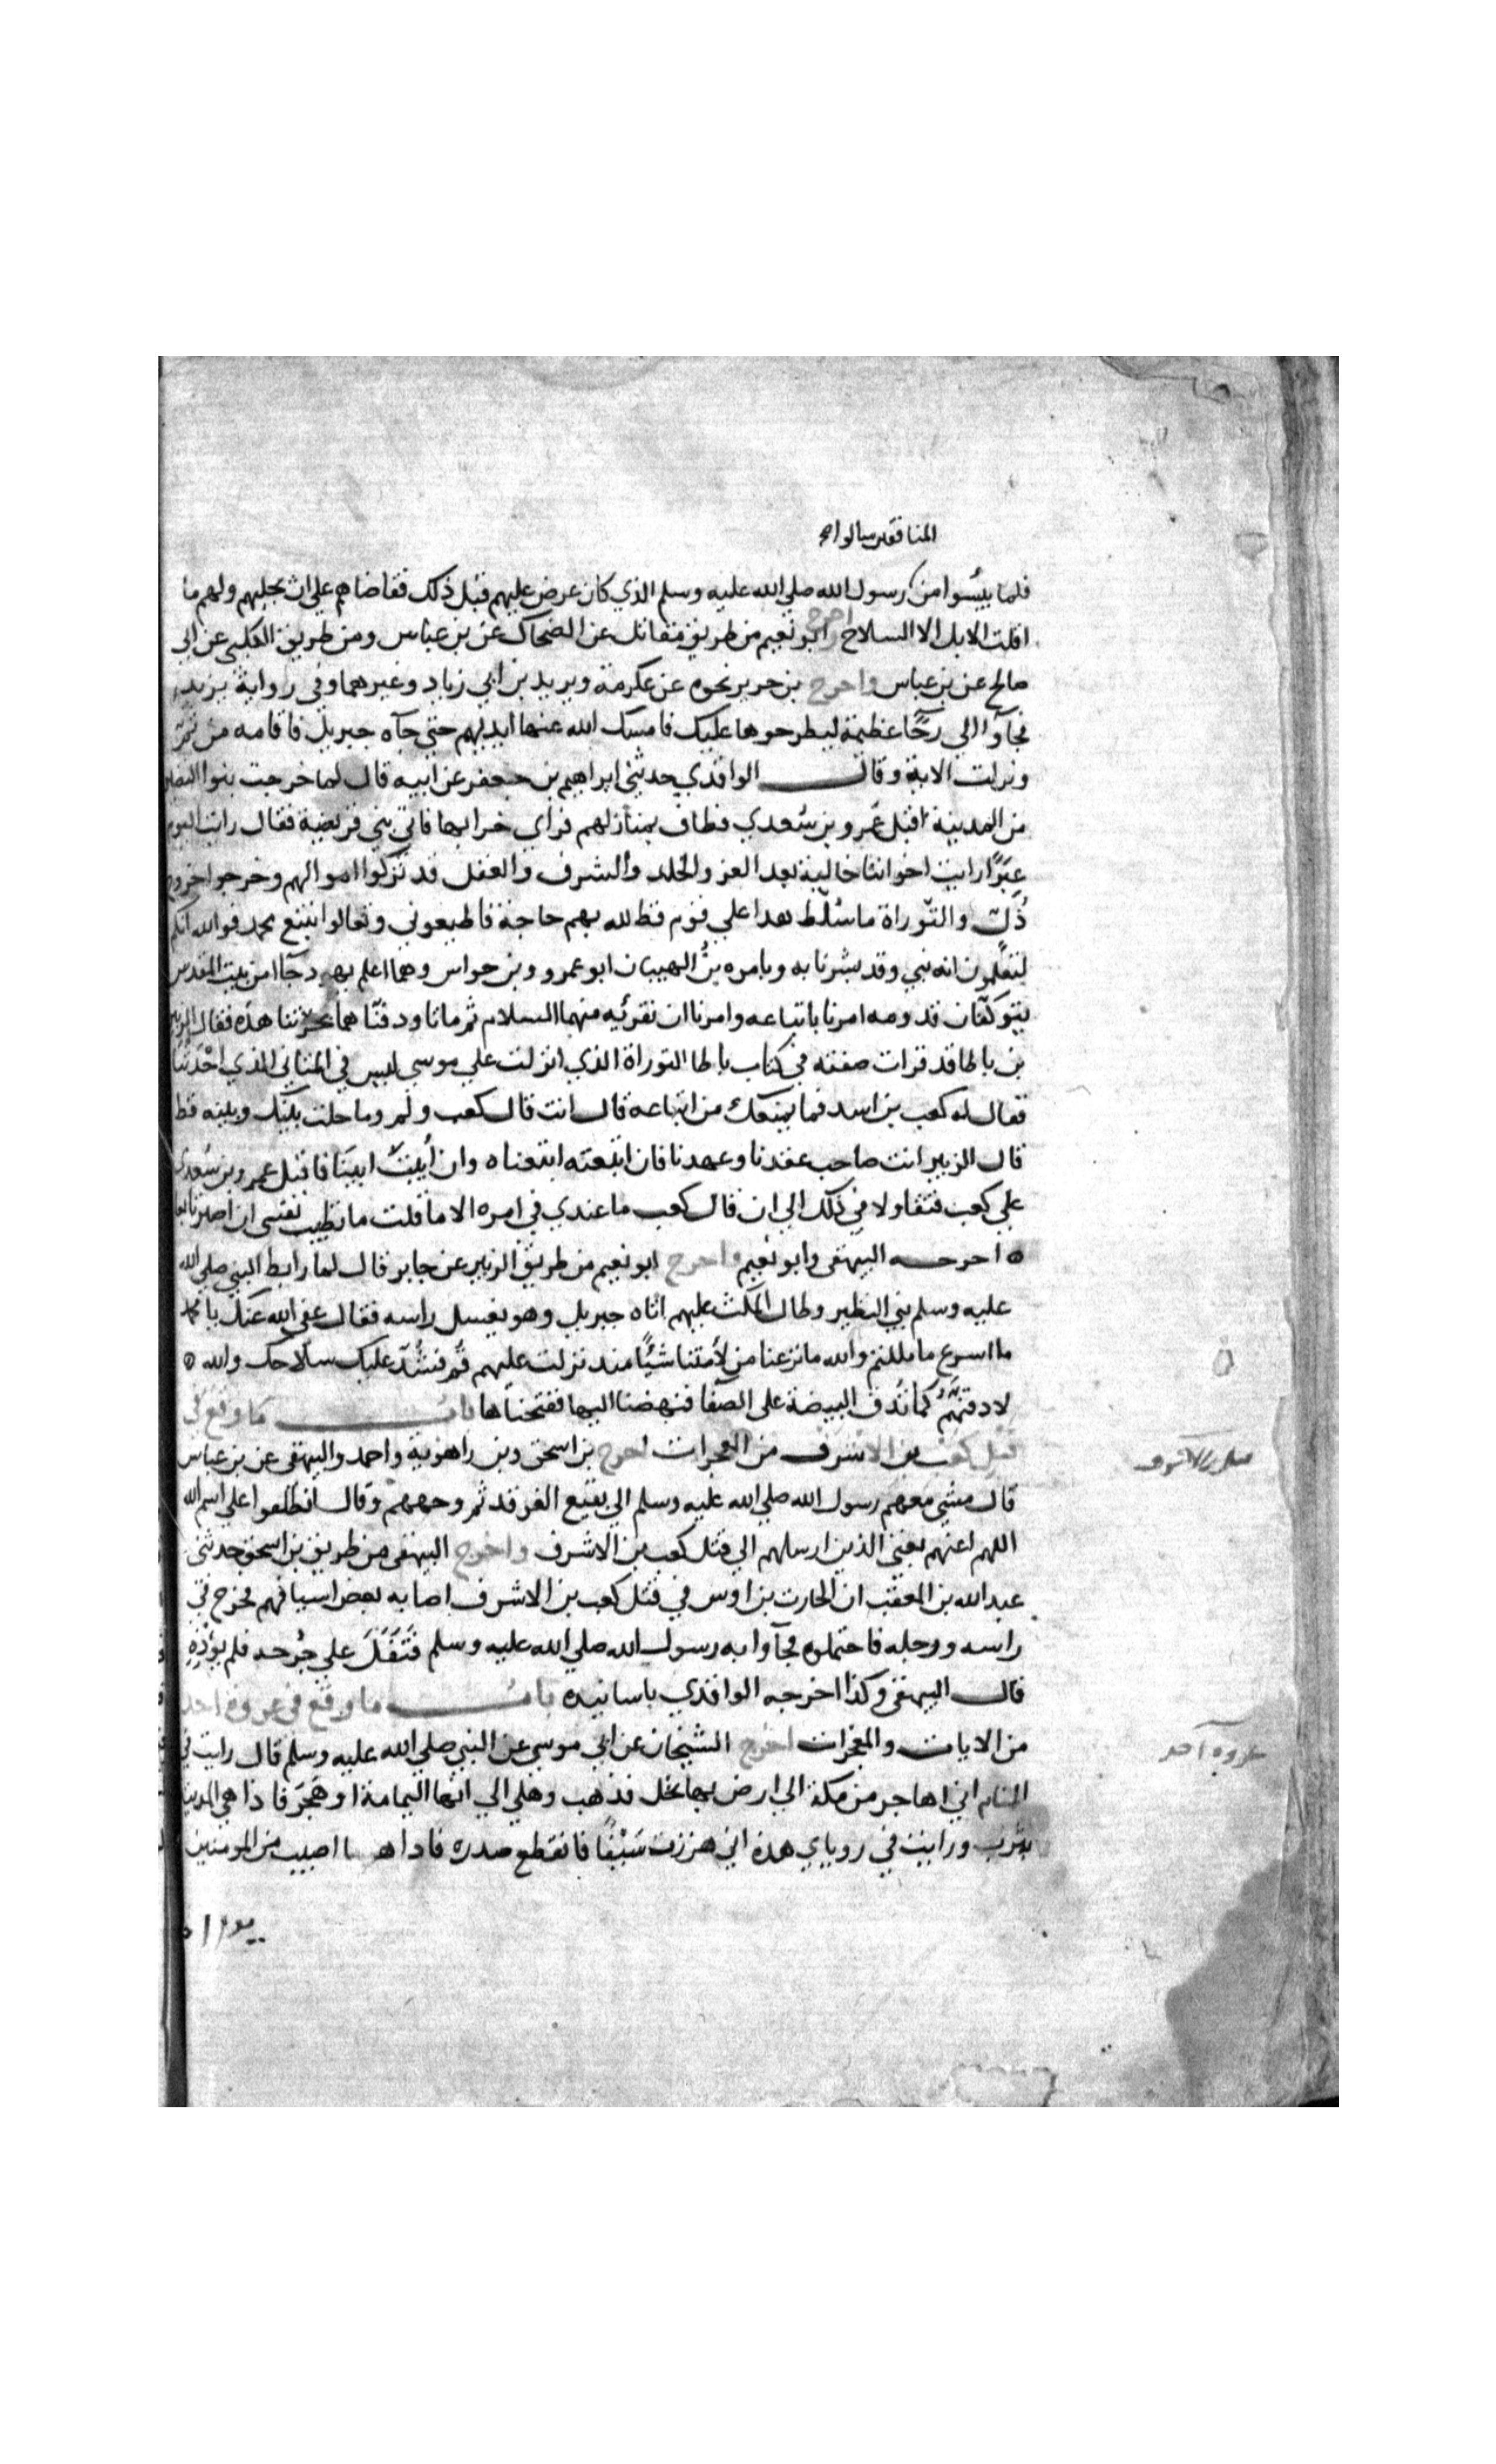 المنافقين سالوا
فلما يئسوا من رسول الله صلي الله عليه وسلم الذي كان عرض عليهم قبل ذلك فقاضاهم علي ان يجليهم ولهم ما
اقلت الابل الا السلاح واخرج ابو نعيم من طريق مقاتل عن الضحاك عن بن عباس ومن طريق الكلبي عن ابي
صالح عن بن عباس واخرج بن جرير نحوه عن عكرمة ويزيد بن ابي زياد وغيرهما وفي رواية يزيد
فجآوا الي رحًا عظيمة ليطرحوها عليك فامسك الله عنها ايديهم حتي جآه جبريل فاقامه من ثم
ونزلت الاية وقال الواقدي حدثني ابراهيم بن جعفر عن ابيه قال لما خرجت بنوا النضير
من المدينة اقبل عَمرو بن سُعدي فطاف بمنازلهم فراي خرابها فاتي بني قريضة فقال رايت اليوم
عِبَرًا رايت اخواننا خالية بعد العز والجلد والشرف والعقل قد تركوا اموالهم وخرجوا خروج
ذُلّ والتوراة ما سُلّط هذا علي قوم قط لله بهم حاجة فاطيعوني وتعالوا نتبع محمد فوالله انكم
لتعلمون انه نبي وقد بشرنا به وبامره بنُ الهيبان ابو عمرو وبن حواس وهما اعلم يهود جآا من بيت المقدس
يتوكفان قدومه امرنا باتباعه وامرنا ان نقرئيه منهما السلام ثم ماتا ودفنّاهما بحرّتنا هذه فقال الزبير
بن باطا قد قرات صفته في كتاب باطا التوراة الذي انزلت علي موسي ليس في المثاني الذي احدثنا
فقال له كعب بن اسد فما يمنعك من اتباعه قال انت قال كعب ولم وما حلت بينك وبينه قط
قال الزبير انت صاحب عقدنا وعهدنا فان اتبعته اتبعناه وان أبيتَ ابينَا فاقبل عمرو بن سُعدي
علي كعب فتقاولا في ذلك الي ان قال كعب ما عندي في امره الا ما قلت ما تطيب نفسي ان اصير تابعا
ه اخرجه البيهقي وابو نعيم واخرج ابو نعيم من طريق الزبير عن جابر قال لما رابط النبي صلي الله
عليه وسلم بني النظير وطال المكث عليهم اتاه جبريل وهو يغسل راسه فقال عفي الله عنك يا محمد
ما اسرع ما مللتم والله ما نزعنا من لأمتنا شيًا منذ نزلت عليهم قُم فشُدّ عليك سلاحك والله ه
لادقنّهُم كما تُدق البيضة علي الصفا فنهضنا اليها ففتحناها باب ما وقع في
قتل كعب بن الاشرف من المعجزات اخرج بن اسحق وبن راهوية واحمد والبيهقي عن بن عباس
قال مشي معهم رسول الله صلي الله عليه وسلم الي بقيع الغرقد ثم وجههم وقال انطلقوا علي اسم الله
اللهم اعنهم يعني الذين ارسلهم الي قتل كعب بن الاشرف واخرج البيهقي من طريق بن اسحق حدثني
عبد الله بن المعقب ان الحارث بن اوس في قتل كعب بن الاشرف اصابه بعض اسيافهم فجرح في
راسه ورجله فاحتملوه فجآوا به رسول الله صلي الله عليه وسلم فتَفَلَ علي جُرحه فلم يؤذِهِ
قال البيهقي وكذا اخرجه الواقدي باسانيده باب ما وقع في غزوة احد
من الايات والمعجزات اخرج الشيخان عن ابي موسي عن النبي صلي الله عليه وسلم قال رايت في
المنام اني اهاجر من مكة الي ارض بها نخل فذهب وهلي الي انها اليمامة او هَجَر فاذا هي المدينة
يثرب ورايت في روياي هذه اني هززت سَيْفًا فانقطع صدره فاذا هو ما اصيب من المومنين
غزوة احد